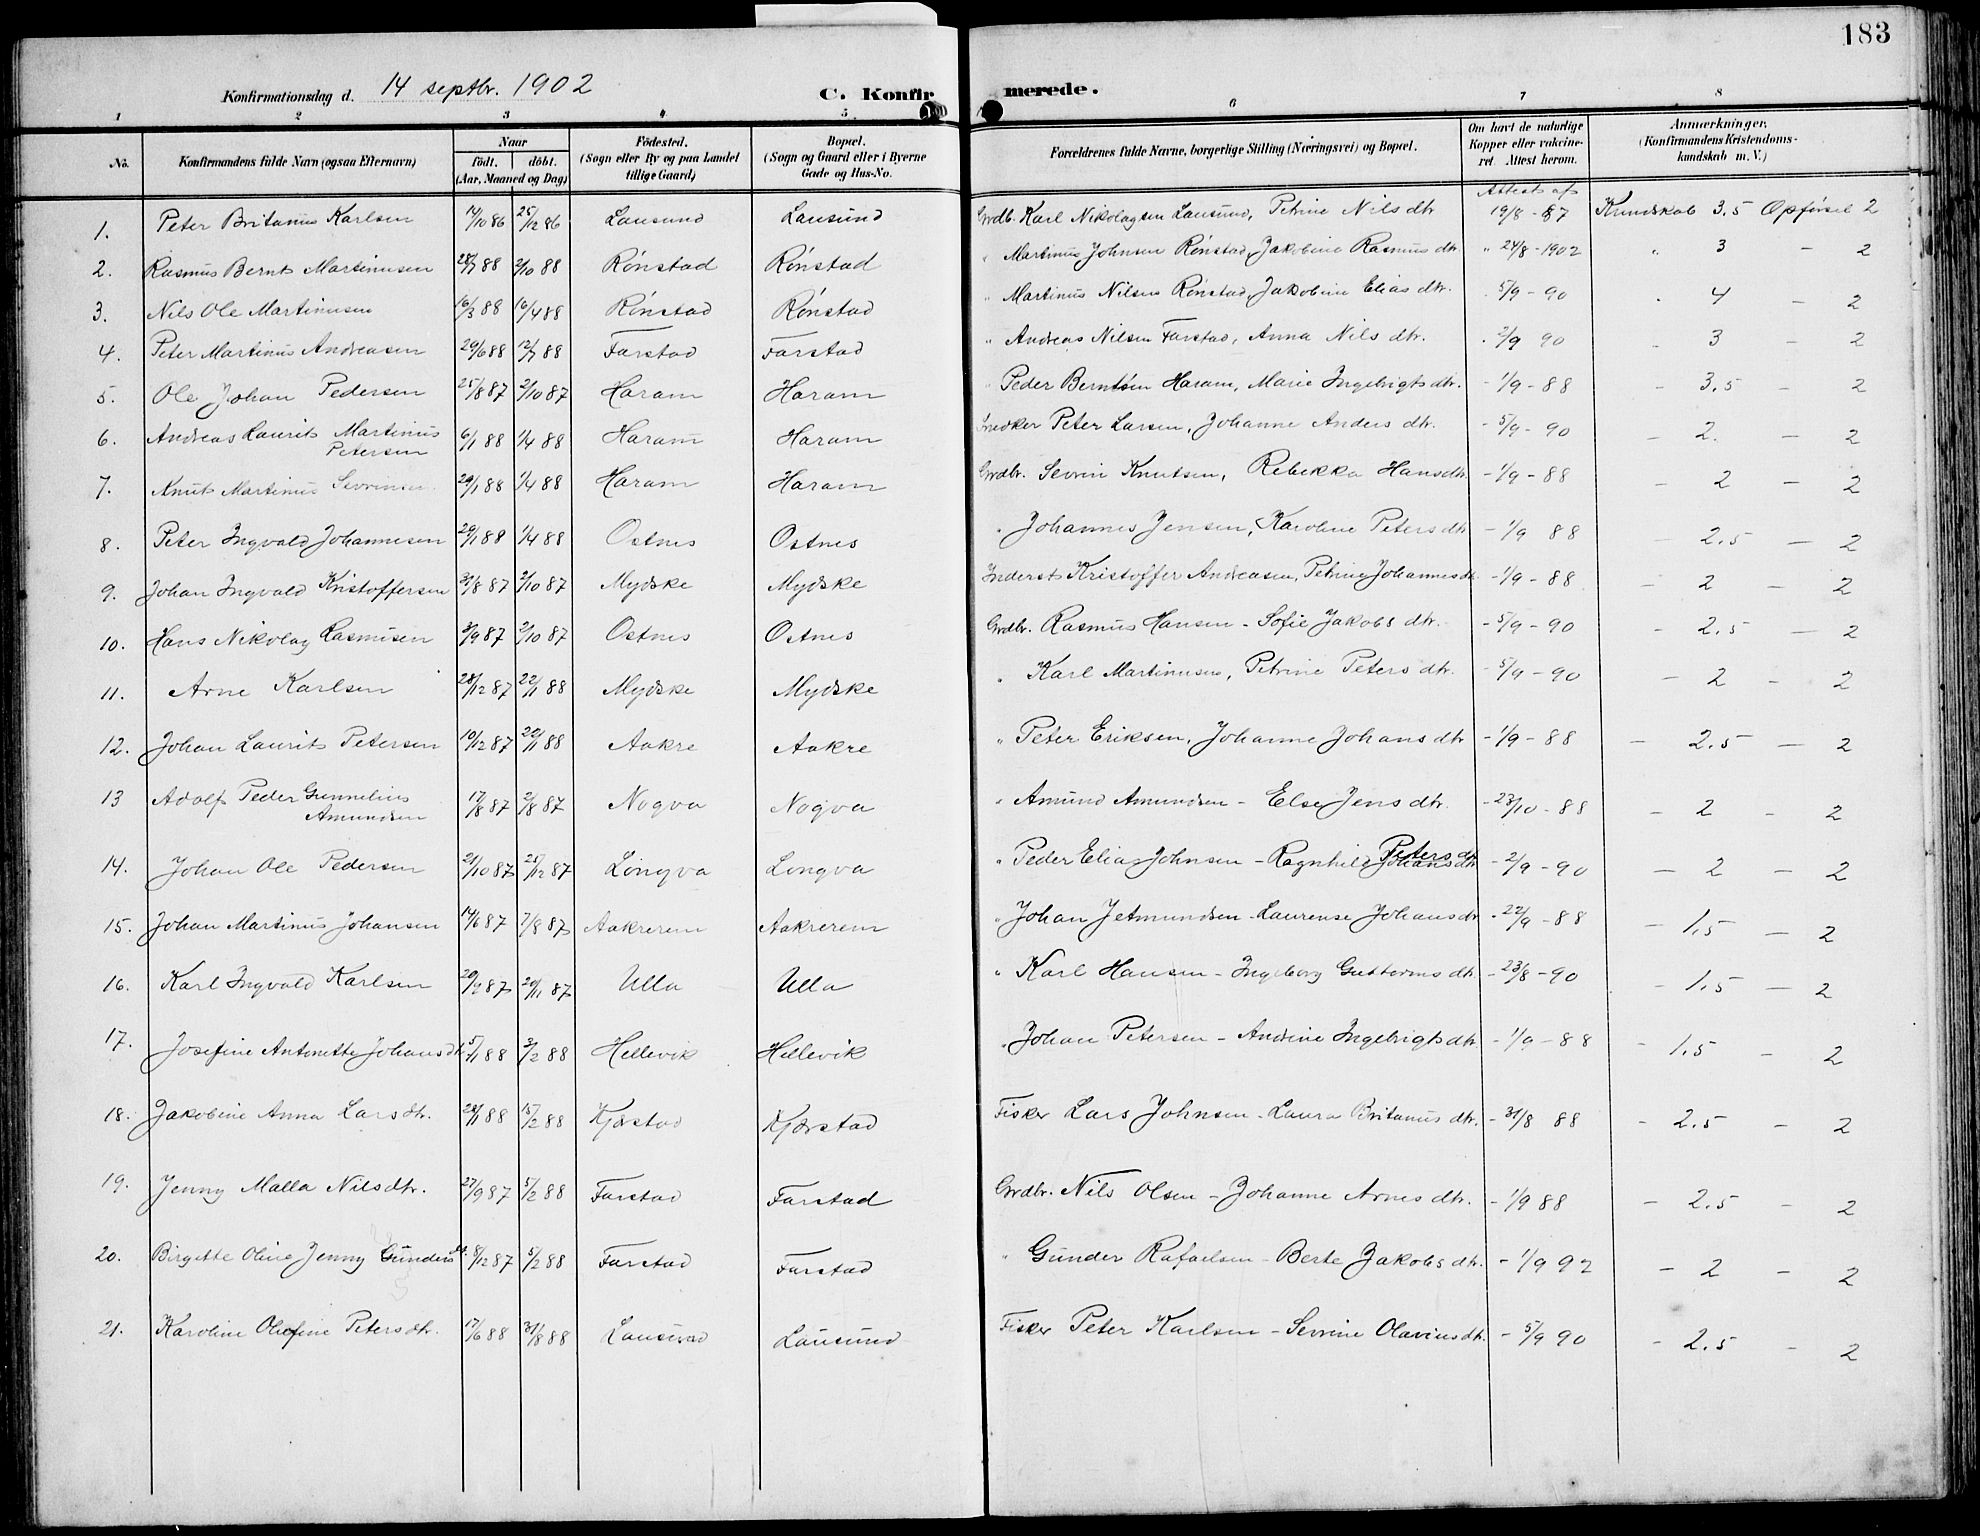 183
Konfirmationsdag d. 14 septbr. 1902 C. Konfirmerede.
1 2 3 4 5 6 7 8
No. Konfirmandens fulde Navn (ogsaa Efternavn) Naar födt. döbt. (Aar, Maaned og Dag) Födested. (Sogn eller By og paa Landet tillige Gaard) Bopæl. (Sogn og Gaard eller i Byerne Gade og Hus-No. Forældrenes fulde Navne, borgerlige Stilling (Næringsvei) og Bopæl. Om havt de naturlige Kopper eller vakcineret. Attest herom. Anmærkninger. (Konfirmandens Kristendomskundskab m. V.)
1. Peter Britanus Karlsen 14/10 86 25/12 86 Lausund Lausund Grdb. Karl Nikolaysen Lausund, Petrine Nils dtr Attest af 19/8 - 87 Kundskab 3.5 Opførsel 2
2. Rasmus Bernt Martinusen 88 2/10 88 Rønstad Rønstad " Martinus Johnsen Rønstad, Jakobine Rasmus dtr. " 24/8 - 1902 " 3 - 2
3. Nils Ole Martinusen 16/3 88 16/4 88 Rønstad Rønstad " Martinus Nilsen Rønstad, Jakobine Elias dtr. 5/9 - 90 4 - 2
4. Peter Martinus Andreasen 29/6 88 12/7 88 Farstad Farstad " Andreas Nilsen Farstad, Anna Nils dtr. 2/9 90 - 3 - 2
5. Ole Johan Pedersen 25/8 87 2/10 87 Haram Haram " Peder Berntsen Haram, Marie Ingebrigts dtr. - 1/9 - 88 - 3.5 - 2
6. Andreas Laurits Martinus Petersen 6/1 88 1/4 88 Haram Haram Snedker Peter Larsen, Johanne Anders dtr. - 5/9 - 90 - 2. - 2
7. Knut Martinus Sevrinsen 29/1 88 1/4 88 Haram Haram Grdbr. Sevrin Knutsen, Rebekka Hansdtr - 1/9 - 88 - 2 - 2
8. Peter Ingvald Johannesen 29/1 88 1/4 88 Ostnes Ostnes " Johannes Jensen, Karoline Peters dtr - 1/9 88 - 2.5 - 2
9. Johan Ingvald Kristoffersen 31/8 87 2/10 87 Mydske Mydske Inderst Kristoffer Andreasen, Petrine Johannesdt. - 1/9 - 88 - 2 - 2
10. Hans Nikolay Rasmusen 3/9 87 2/10 87 Ostnes Ostnes Grdbr. Rasmus Hansen - Sofie Jakobs dtr. - 5/9 - 90 - 2.5 - 2
11. Arne Karlsen 28/12 87 22/1 88 Mydske Mydske " Karl Martinusen, Petrine Peters dtr. - 5/9 - 90 - 2 - 2
12. Johan Laurits Petersen 10/12 87 22/1 88 Aakre Aakre " Peter Eriksen, Johanne Johans dtr - 1/9 - 88 - 2.5 - 2
13 Adolf Peder Gunnelius Amundsen 17/8 87 87 Nogva Nogva " Amund Amundsen - Else Jens dtr. - 23/10 - 88 - 2 - 2
14. Johan Ole Pedersen 21/10 87 87 Longva Longva " Peder Elias Johnsen - Ragnhild Johansdtr Peters dtr - 2/9 - 90 - 2 - 2
15. Johan Martinus Johansen 14/6 87 7/8 87 Aakrerem Aakrerem " Johan Jetmundsen - Laurense Johansdtr - 22/9 - 88 - 1,5 - 2
16. Karl Ingvald Karlsen 87 20/11 87 Ulla Ulla " Karl Hansen - Ingeborg Guttorms dtr. - 23/8 - 90 - 1.5 - 2
17. Josefine Antonette Johansdt. 5/1 88 3/2 88 Hellevik Hellevik " Johan Petersen - Andrine Ingebrigts dtr - 1/9 - 88 - 1.5 - 2
18. Jakobine Anna Lars dtr. 28/1 88 15/2 88 Kjerstad Kjerstad Fisker Lars Johnsen - Laura Britanus dtr. - 31/8 88 - 2.5 - 2
19. Jenny Malla Nils dtr. 27/9 87 5/2 88 Farstad Farstad Grdbr. Nils Olsen - Johanne Arnes dtr. - 1/9 88 - 2.5 - 2
20. Birgitte Oline Jenny Gunders dt. 8/12 87 5/2 88 Farstad Farstad " Gunder Rafaelsen - Berte Jakobs dtr. - 1/9 92 - 2 - 2
21. Karoline Olufine Peters dtr. 17/6 88 31/8 88 Lausund Lausund Fisker Peter Karlsen - Sevrine Olavius dtr. - 5/9 90 - 2.5 - 2